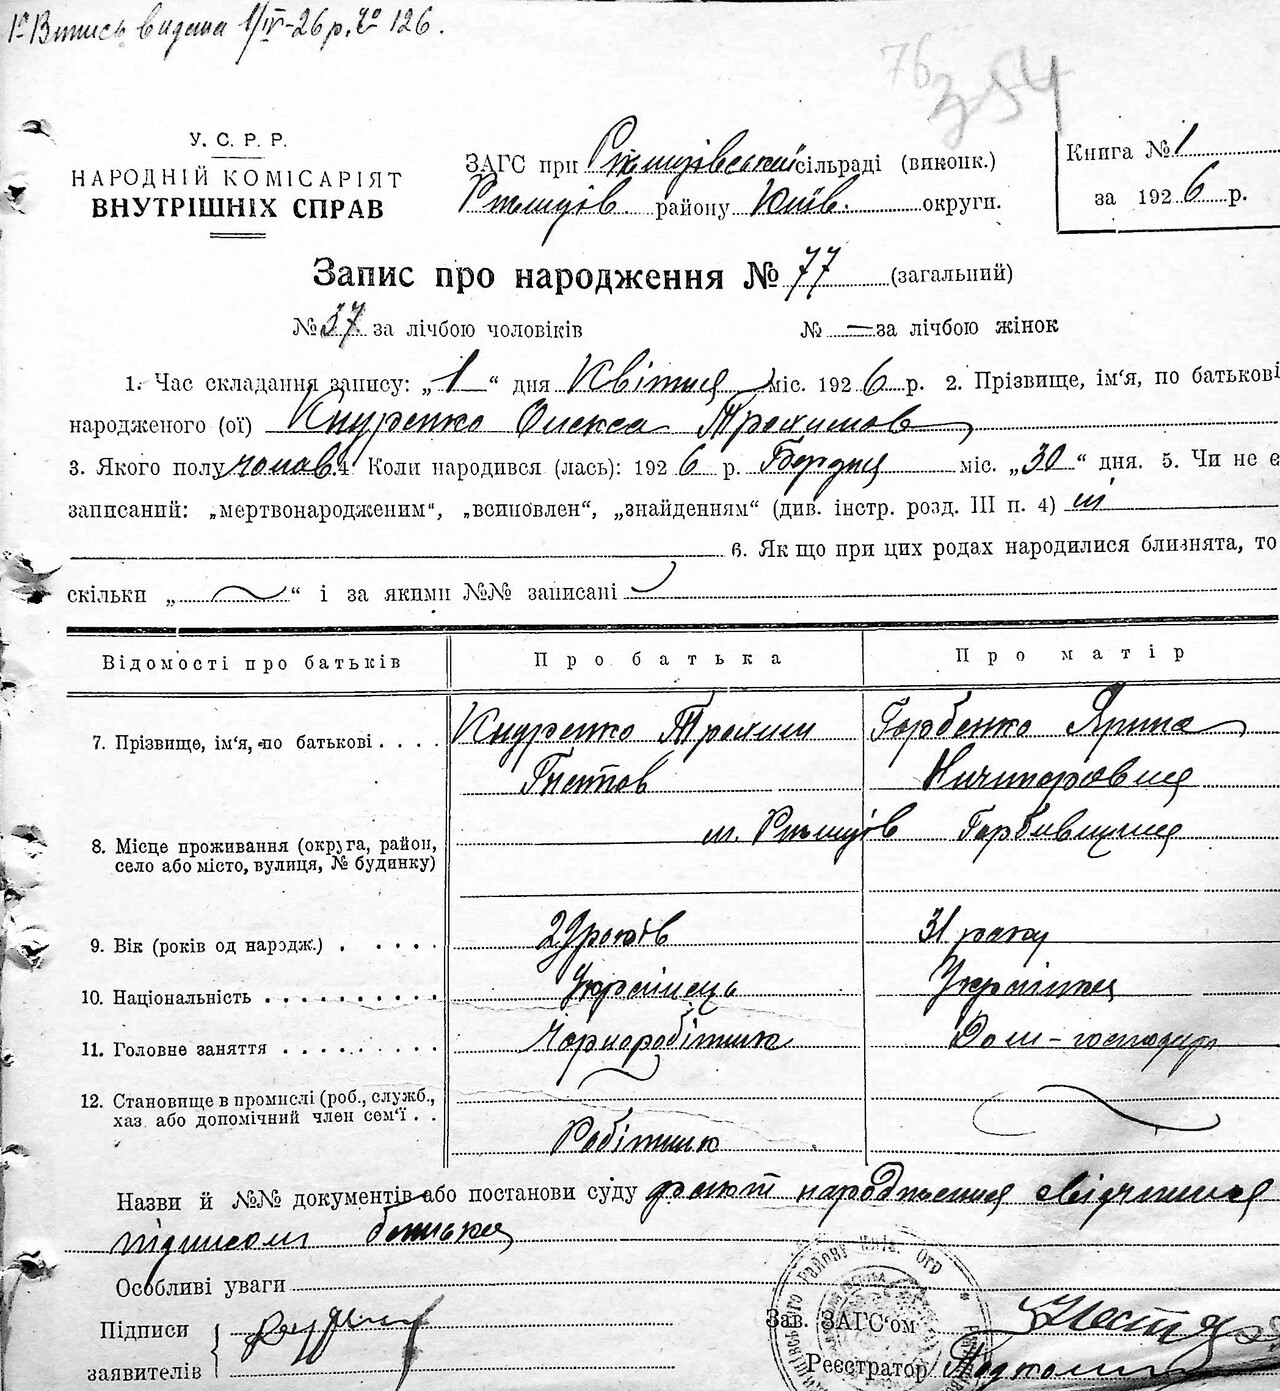 1. Витись видана 1/IV-26 р. № 126.
76
354
У. С. Р. Р.
НАРОДНІЙ КОМІСАРІЯТ
ВНУТРІШНІХ СПРАВ
ЗАГС при Ржищівський сільраді (виконк.)
Ржищів. району Київ. округи.
Книга № 1
за 1926 р.
Запис про народження № 77 (загальний)
№ 37 за лічбою чоловіків № — за лічбою жінок
1. Час складання запису: „1“ дня Квітня міс. 1926 р. 2. Прізвище, ім‘я, по батькові
народженого (ої) Кнуренко Олекса Трохимов
3. Якого полу чолов. 4. Коли народився (лась): 1926 р. Бердня міс. „30“ дня. 5. Чи не є
записаний: „мертвонародженим“, „всиновлен“, „знайденням“ (див. інстр. розд. III п. 4) ні
6. Як що при цих родах народилися близнята, то
скільки „ “ і за якими №№ записані
Відомості про батьків Про батька Про матір
7. Прізвище, ім‘я, по батькові . . . . Кнуренко Трохим Горбенко Ярина
Гнатов Ничипоровна
8. Місце проживання (округа, район, м. Ржищів Горбівщина
село або місто, вулиця, № будинку)
9. Вік (років од народж.) . . . . . 29 років 31 року
10. Національність . . . . . . . . . . Українець Українка
11. Головне заняття . . . . . . . . . Чорноробітник Дом-господар
12. Становище в промислі (роб., служб.,
хаз. або допомічний член сем‘ї . .
Робітник
Назви й №№ документів або постанови суду факт народження свідчится
підписом батька
Особливі уваги
Підписи
заявителів
Зав. ЗАГС‘ом
Реєстратор